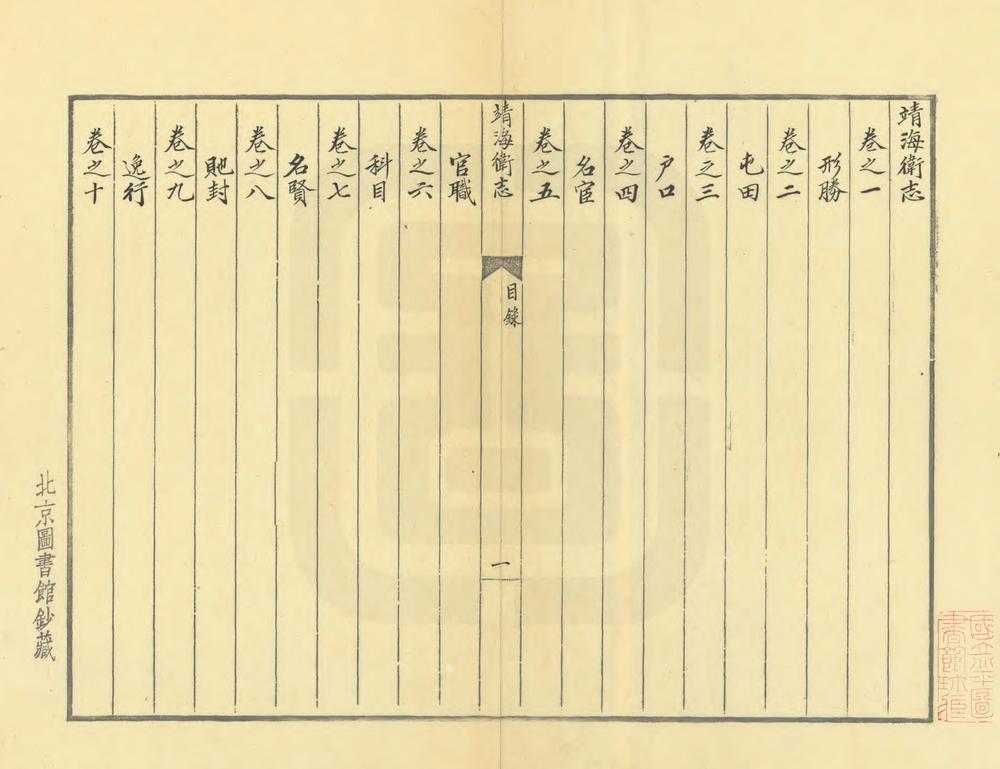 靖海衛志
卷之一
形勝
卷之二
屯田
卷之三
戶口
卷之四
名宦
卷之五
靖海衛志
目錄
一
官職
卷之六
科目
卷之七
名賢
卷之八
貤封
卷之九
逸行
卷之十
北京圖書館鈔藏